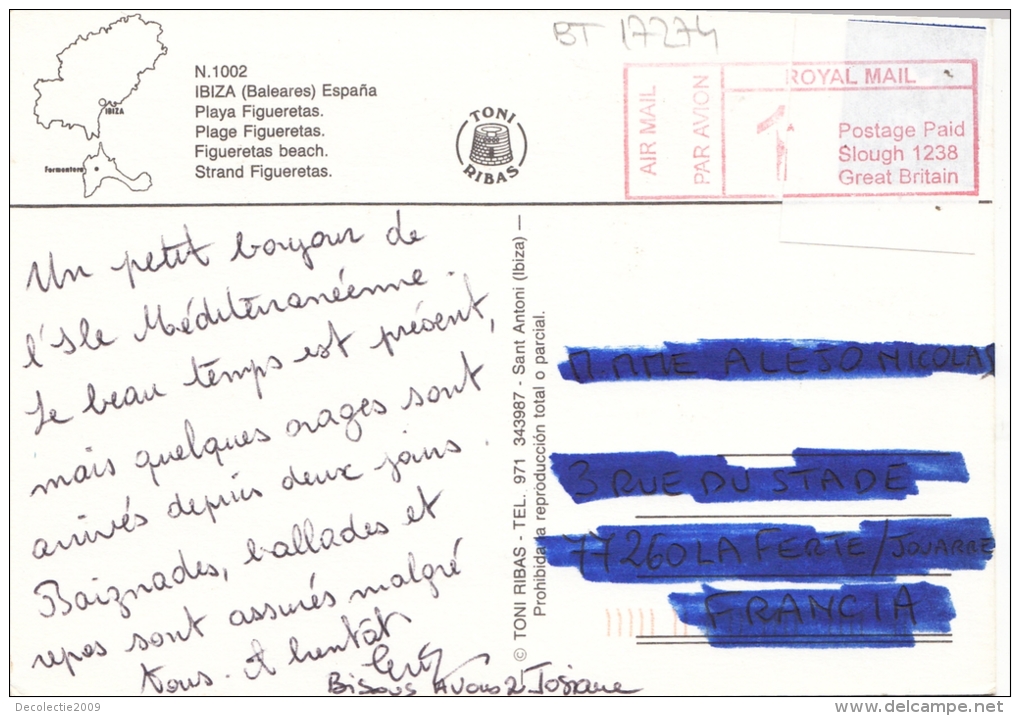 BT 17274
N.1002
IBIZA (Baleares) España
Playa Figueretas.
Plage Figueretas.
Figueretas beach.
Strand Figueretas.
IBIZA
Formentera
TONI
RIBAS
AIR MAIL
PAR AVION
ROYAL MAIL
Postage Paid
Slough 1238
Great Britain
Un petit bonjour de
l'Isle Méditerranéenne.
Le beau temps est présent,
mais quelques orages sont
arrivés depuis deux jours.
Baignades, ballades et
repos sont assurés malgré
tous. A bientôt
Bisous A Vous 2 Josiane
© TONI RIBAS - TEL. 971 343987 - Sant Antoni (Ibiza) —
Prohibida la reproducción total o parcial.
M. MME ALEJO NICOLAS
3 RUE DU STADE
77260 LA FERTE/JOUARRE
FRANCIA
Decolectie2009
www.delcampe.net